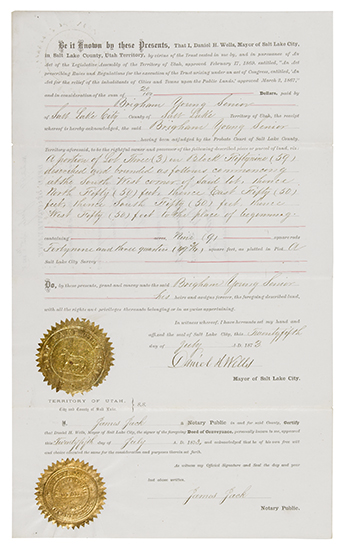 Be it Known by these Presents, That I, Daniel H. Wells, Mayor of Salt Lake City,
in Salt Lake County, Utah Territory, by virtue of the Trust vested in me by, and in pursuance of an
Act of the Legislative Assembly of the Territory of Utah, approved February 17, 1869, entitled, "An Act
prescribing Rules and Regulations for the execution of the Trust arising under an act of Congress, entitled, 'An
Act for the relief of the inhabitants of Cities and Towns upon the Public Lands,' approved March 2, 1867,"
and in consideration of the sum of Dollars, paid by
Brigham Young Senior
of Salt Lake City County of Salt Lake Territory of Utah, the receipt
whereof is hereby acknowledged, the said Brigham Young Senior
having been adjudged by the Probate Court of Salt Lake County,
Territory aforesaid, to be the rightful owner and possessor of the following described piece or parcel of land, viz:
A portion of Lot Three (3) in Block Fiftynine (59)
described and bounded as follows commencing
at the South West corner of said lot, thence
North Fifty (50) feet thence East Fifty (50)
feet thence South Fifty (50) feet thence
West Fifty (50) feet to the place of beginning
containing Nine (9)
Fortynine and three quarters (49 3/4) square feet, as platted in Plat A
Salt Lake City Survey
Do, by these presents, grant and convey unto the said Brigham Young Senior
his heirs and assigns forever, the foregoing described land,
with all the rights and privileges thereunto belonging or in anywise appertaining.
In witness whereof, I have hereunto set my hand and
affixed the seal of Salt Lake City, this Twentyfifth
day of July A. D. 187
Daniel H Wells
Mayor of Salt Lake City.
TERRITORY OF UTAH,
City and County of Salt Lake. ss.
I, James Jack a Notary Public in and for said County, Certify
that Daniel H. Wells, Mayor of Salt Lake City, the signer of the foregoing Deed of Conveyance, personally known to me, appeared
this Twentyfifth day of July A. D. 187 and acknowledged that he of his own free will
and choice executed the same for the consideration and purposes therein set forth.
As witness my Official Signature and Seal the day and year
last above written.
James Jack
Notary Public.